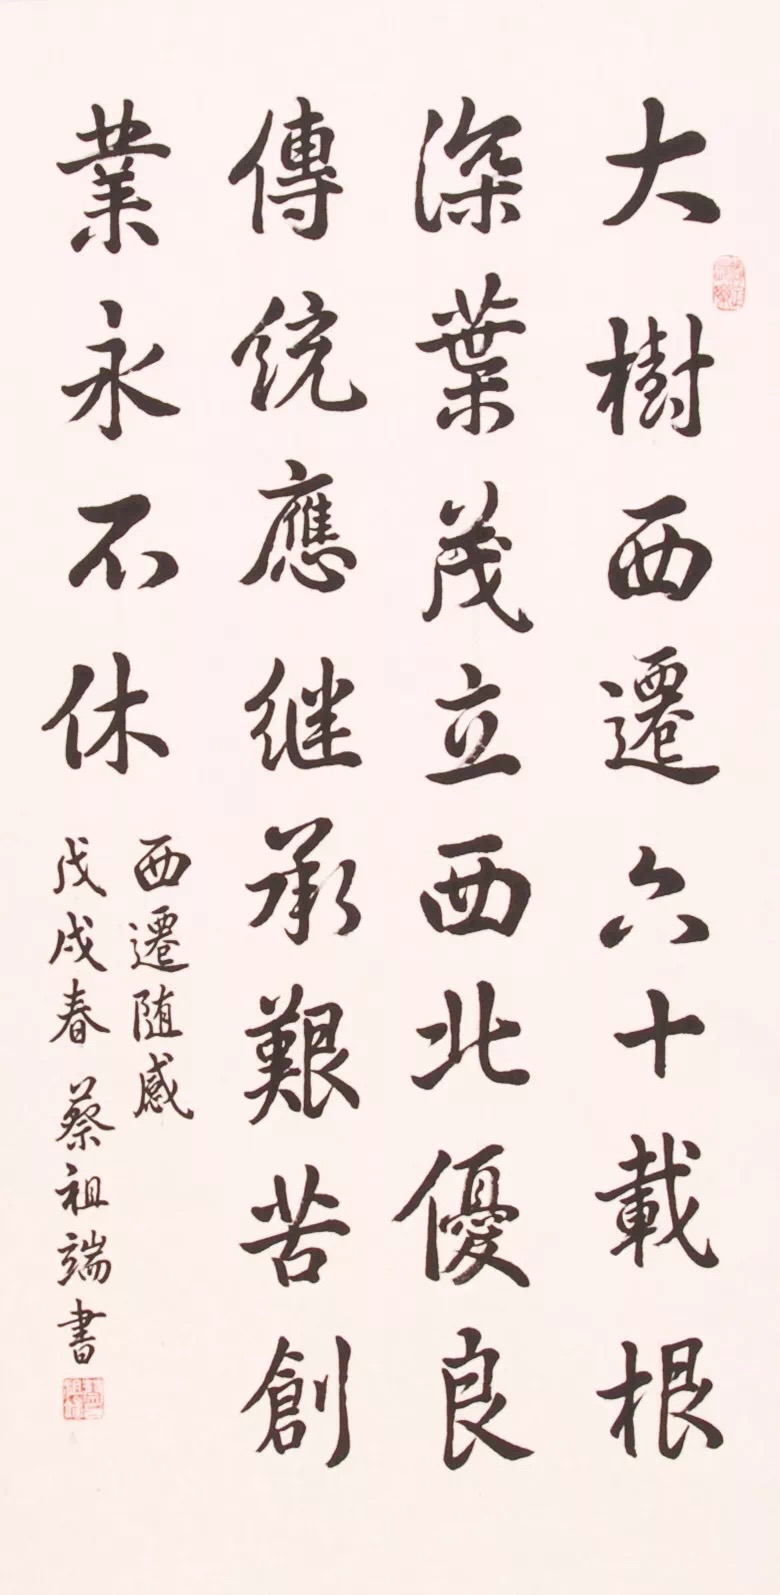 大樹西遷六十載根
深葉茂立西北優良
傳統應继承艱苦創
業永不休
西遷随感
戊戌春 蔡祖端書